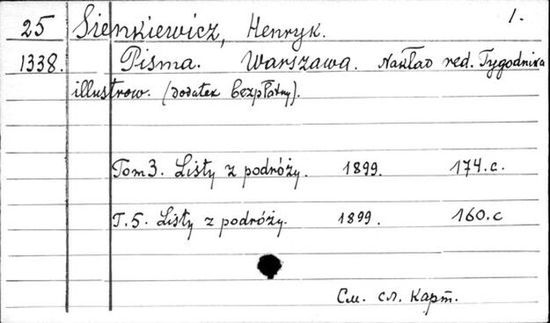 25 Sienkiewicz, Henryk. 1.
1338. Pisma. Warszawa. Nakład red. Tygodnika
illustrow. (Dodatek bezpłatny).
Tom 3. Listy z podróży. 1899. 174.c.
T.5. Listy z podróży. 1899. 160.c
См. сл. карт.